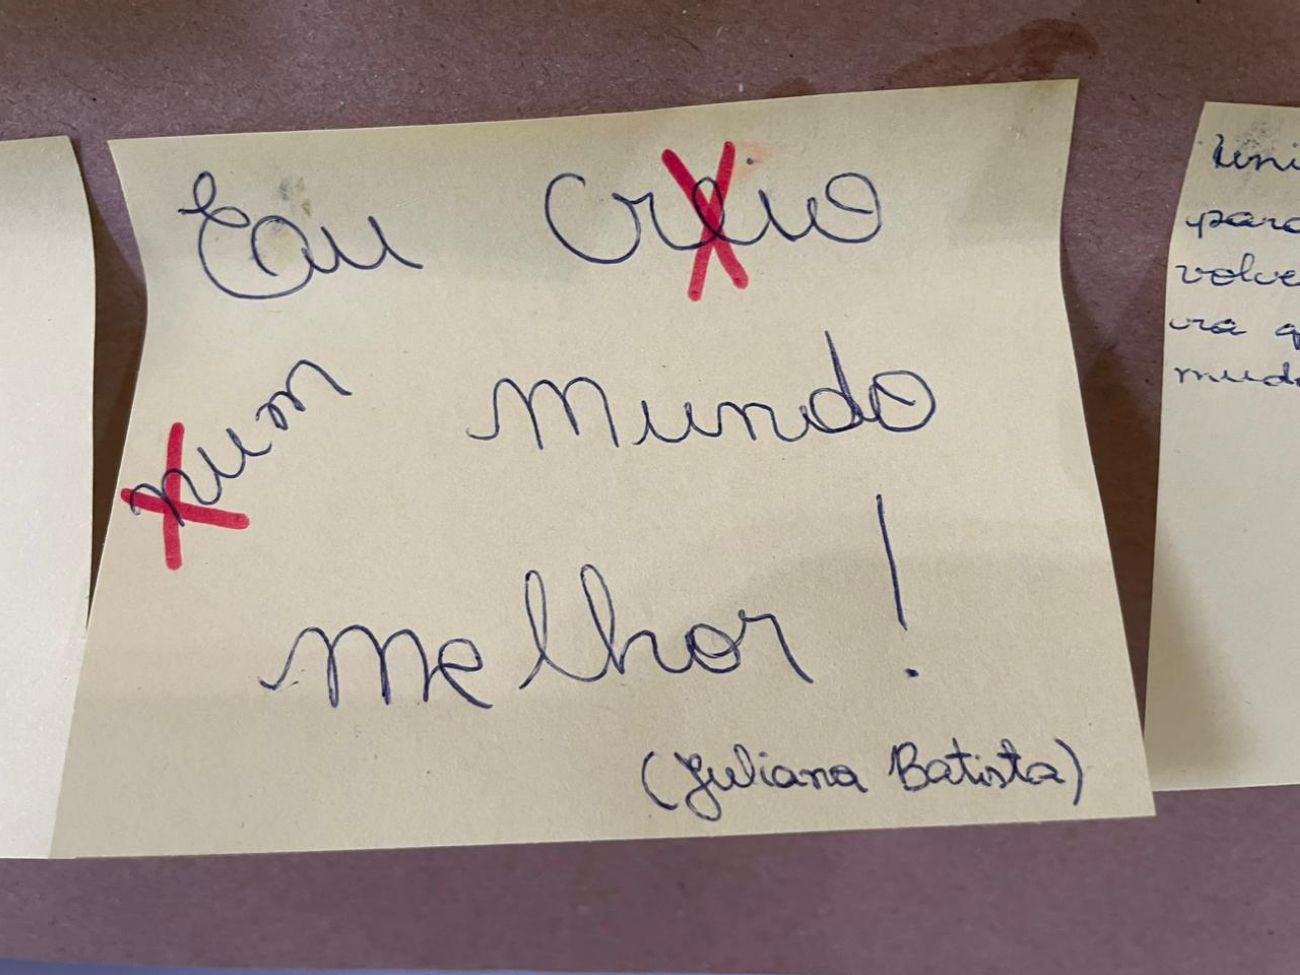 Eu Creio
num mundo
melhor!
(Juliana Batista)
Uni
para
volve
ra q
mud